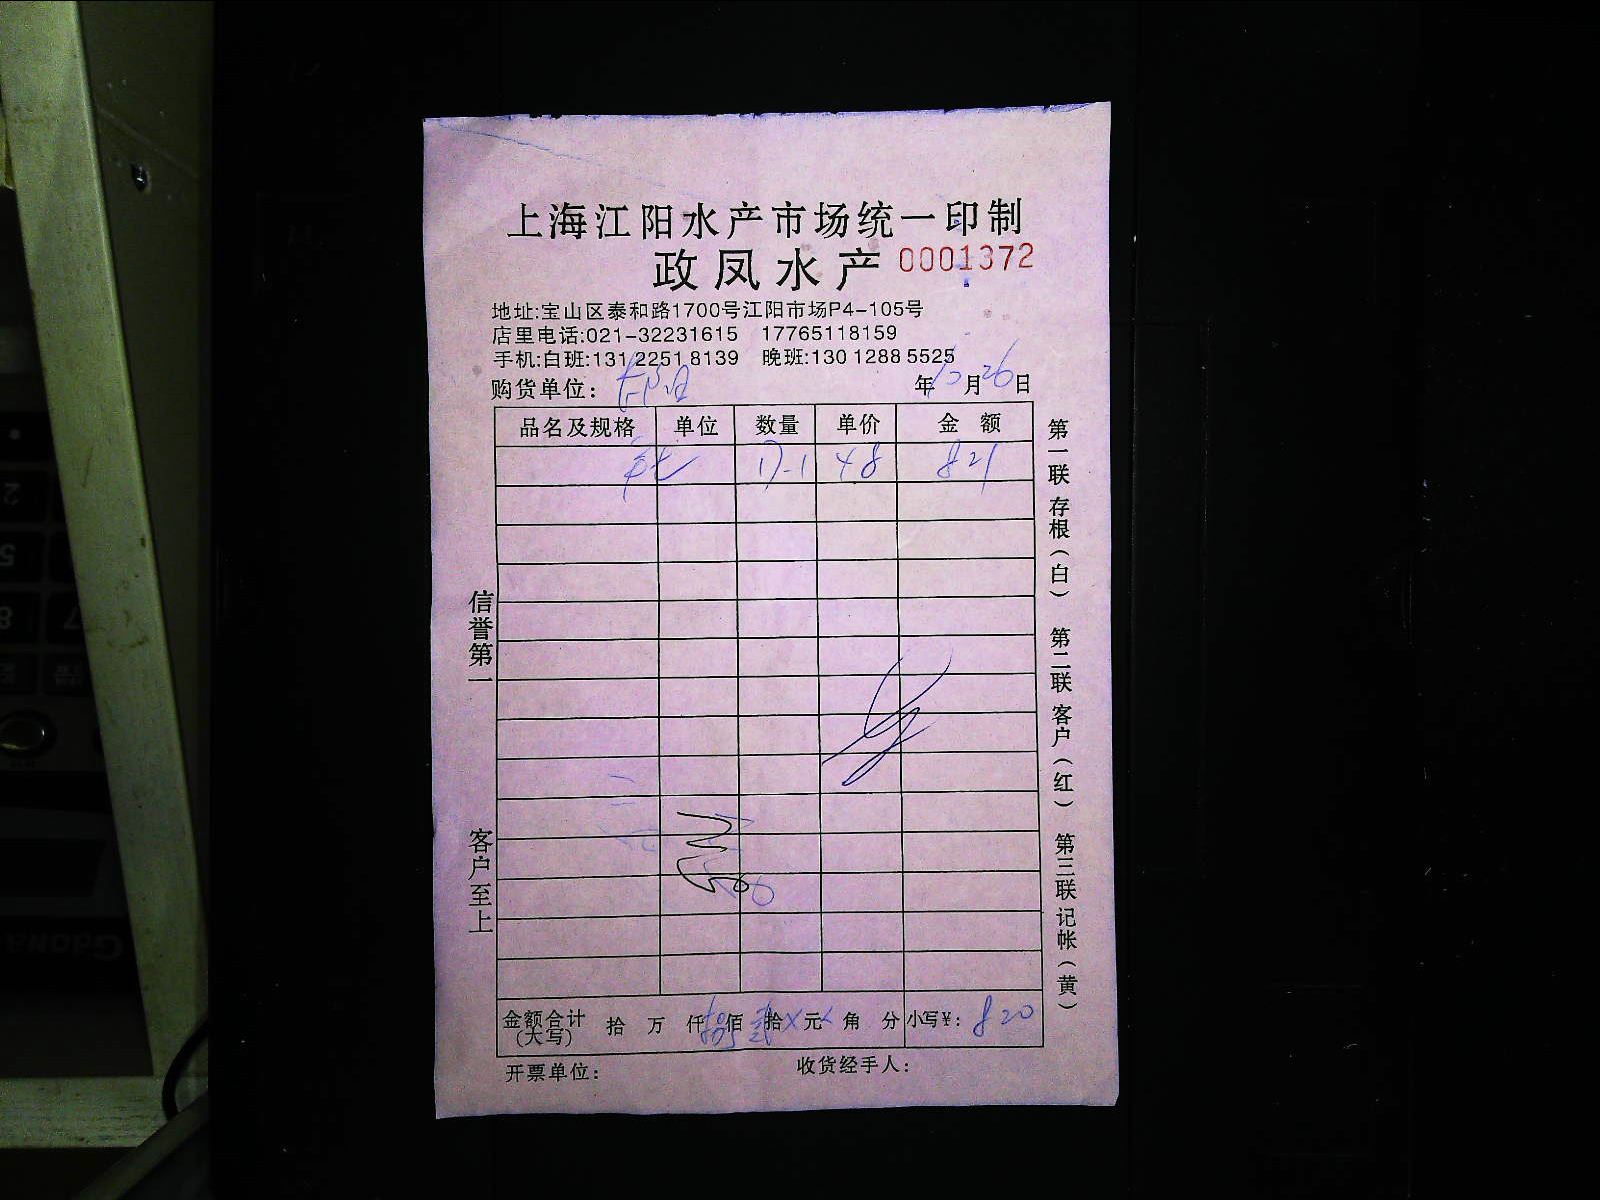 上海江阳水产市场统一印制
政凤水产 0001372
地址:宝山区泰和路1700号江阳市场P4-105号
店里电话:021-32231615 17765118159
手机:白班:131 2251 8139 晚班:130 1288 5525
购货单位: 年10月26日
品名及规格 单位 数量 单价 金 额
17-1 48 821
信誉第一
客户至上
第一联 存根(白) 第二联 客户(红) 第三联 记帐(黄)
金额合计(大写) 拾 万 仟捌佰贰拾X元 角 分 小写¥: 820
开票单位: 收货经手人: